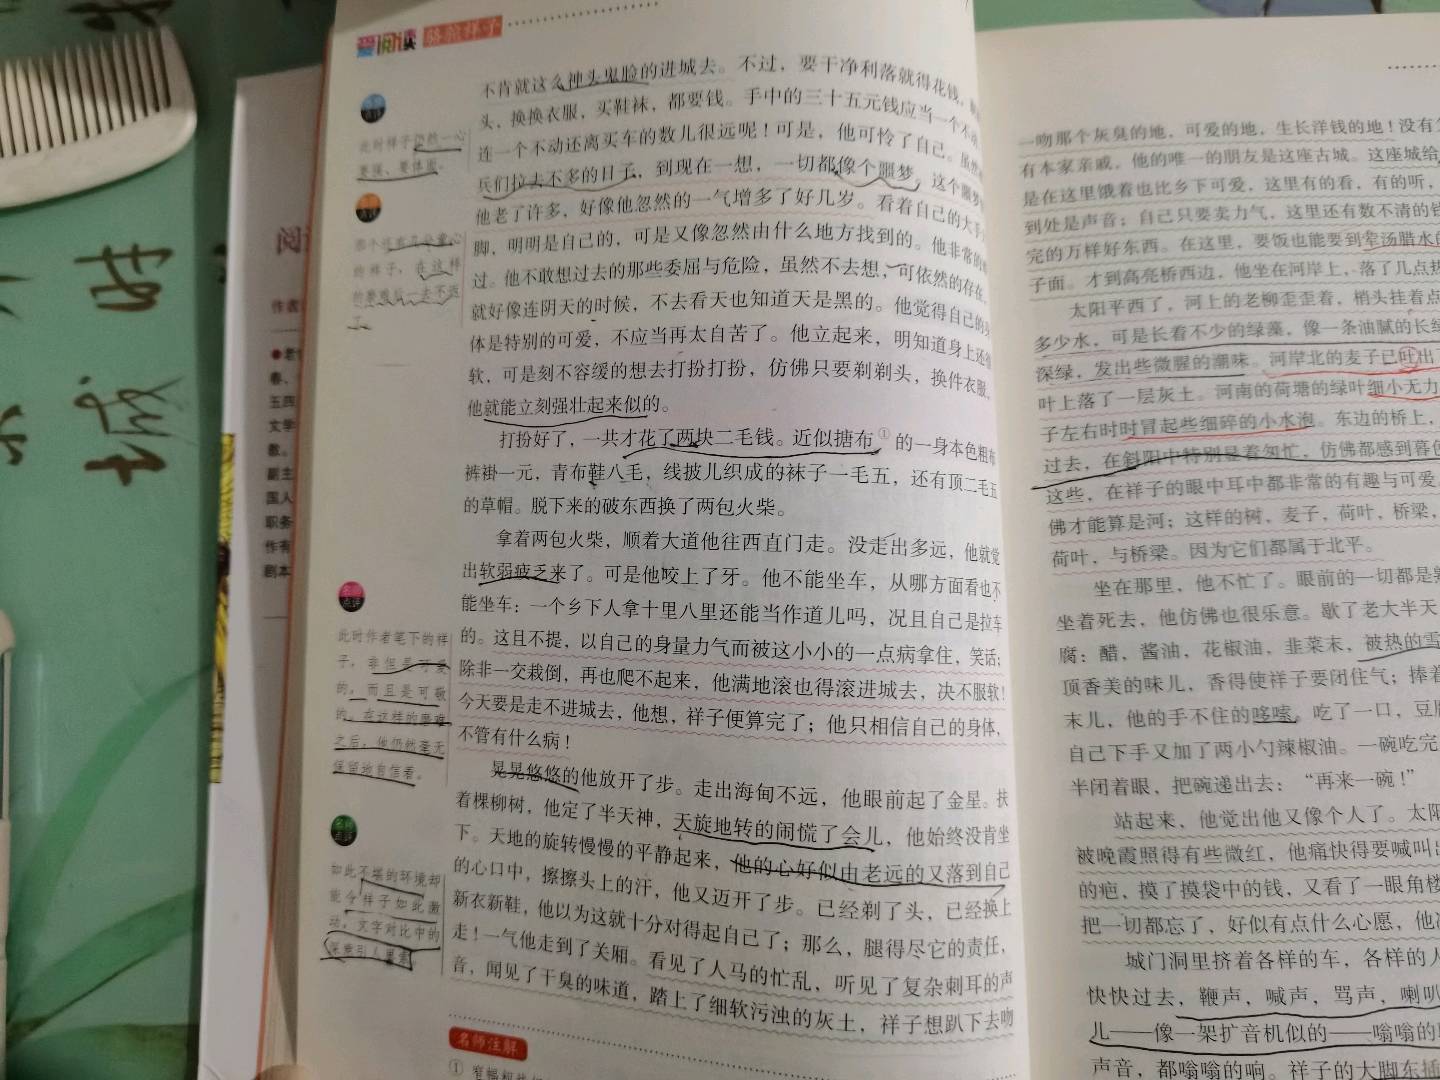 爱阅读 骆驼祥子
不肯就这么神头鬼脸的进城去。不过，要干净利落就得花钱，
头，换换衣服，买鞋袜，都要钱。手中的三十五元钱应当一个不
连一个不动还离买车的数儿很远呢！可是，他可怜了自己。虽然
兵们拉去不多的日子，到现在一想，一切都像个噩梦。这个噩梦
他老了许多，好像他忽然的一气增多了好几岁。看着自己的大手
脚，明明是自己的，可是又像忽然由什么地方找到的。他非常的
过。他不敢想过去的那些委屈与危险，虽然不去想，可依然的存在，
就好像连阴天的时候，不去看天也知道天是黑的。他觉得自己的身
体是特别的可爱，不应当再太自苦了。他立起来，明知道身上还很
软，可是刻不容缓的想去打扮打扮，仿佛只要剃剃头，换件衣服，
他就能立刻强壮起来似的。
打扮好了，一共才花了两块二毛钱。近似搪布①的一身本色粗布
裤褂一元，青布鞋八毛，线披儿织成的袜子一毛五，还有顶二毛五
的草帽。脱下来的破东西换了两包火柴。
拿着两包火柴，顺着大道他往西直门走。没走出多远，他就觉
出软弱疲乏来了。可是他咬上了牙。他不能坐车，从哪方面看也不
能坐车：一个乡下人拿十里八里还能当作道儿吗，况且自己是拉车
的。这且不提，以自己的身量力气而被这小小的一点病拿住，笑话；
除非一交栽倒，再也爬不起来，他满地滚也得滚进城去，决不服软！
今天要是走不进城去，他想，祥子便算完了；他只相信自己的身体，
不管有什么病！
晃晃悠悠的他放开了步。走出海甸不远，他眼前起了金星。扶
着棵柳树，他定了半天神，天旋地转的闹慌了会儿，他始终没肯坐
下。天地的旋转慢慢的平静起来，他的心好似由老远的又落到自己
的心口中，擦擦头上的汗，他又迈开了步。已经剃了头，已经换上
新衣新鞋，他以为这就十分对得起自己了；那么，腿得尽它的责任，
走！一气他走到了关厢。看见了人马的忙乱，听见了复杂刺耳的声
音，闻见了干臭的味道，踏上了细软污浊的灰土，祥子想趴下去吻
名师注解
此时祥子仍然一心
要强、要体面。
那个还有几分童心
的祥子，在这样
的磨难后一去不返
了。
名师点评
此时作者笔下的祥
子，非但是可爱
的，而且是可敬
的。在这样的磨难
之后，他仍然毫无
保留地自信着。
名师点评
如此不堪的环境却
能令祥子如此激
动，文字对比中的
深意引人思索。
一吻那个灰臭的地，可爱的地，生长洋钱的地！没有
有本家亲戚，他的唯一的朋友是这座古城。这座城给
是在这里饿着也比乡下可爱，这里有的看，有的听，
到处是声音；自己只要卖力气，这里还有数不清的钱
完的万样好东西。在这里，要饭也能要到荤汤腊水的
子面。才到高亮桥西边，他坐在河岸上，落了几点热
太阳平西了，河上的老柳歪歪着，梢头挂着点
多少水，可是长着不少的绿藻，像一条油腻的长绿
深绿，发出些微腥的潮味。河岸北的麦子已吐出了
叶上落了一层灰土。河南的荷塘的绿叶细小无力
子左右时时冒起些细碎的小水泡。东边的桥上，
过去，在斜阳中特别显着匆忙，仿佛都感到暮色
这些，在祥子的眼中耳中都非常的有趣与可爱。
佛才能算是河；这样的树，麦子，荷叶，桥梁，
荷叶，与桥梁。因为它们都属于北平。
坐在那里，他不忙了。眼前的一切都是熟
坐着死去，他仿佛也很乐意。歇了老大半天
腐：醋，酱油，花椒油，韭菜末，被热的雪
顶香美的味儿，香得使祥子要闭住气；捧着
末儿，他的手不住的哆嗦。吃了一口，豆腐
自己下手又加了两小勺辣椒油。一碗吃完
半闭着眼，把碗递出去：“再来一碗！”
站起来，他觉出他又像个人了。太阳
被晚霞照得有些微红，他痛快得要喊叫出
的疤，摸了摸袋中的钱，又看了一眼角楼
把一切都忘了，好似有点什么心愿，他
城门洞里挤着各样的车，各样的人
快快过去，鞭声，喊声，骂声，喇叭
儿——像一架扩音机似的——嗡嗡的
声音，都嗡嗡的响。祥子的大脚东插
作者
五四
文学
副主
国人
职务
作有
剧本